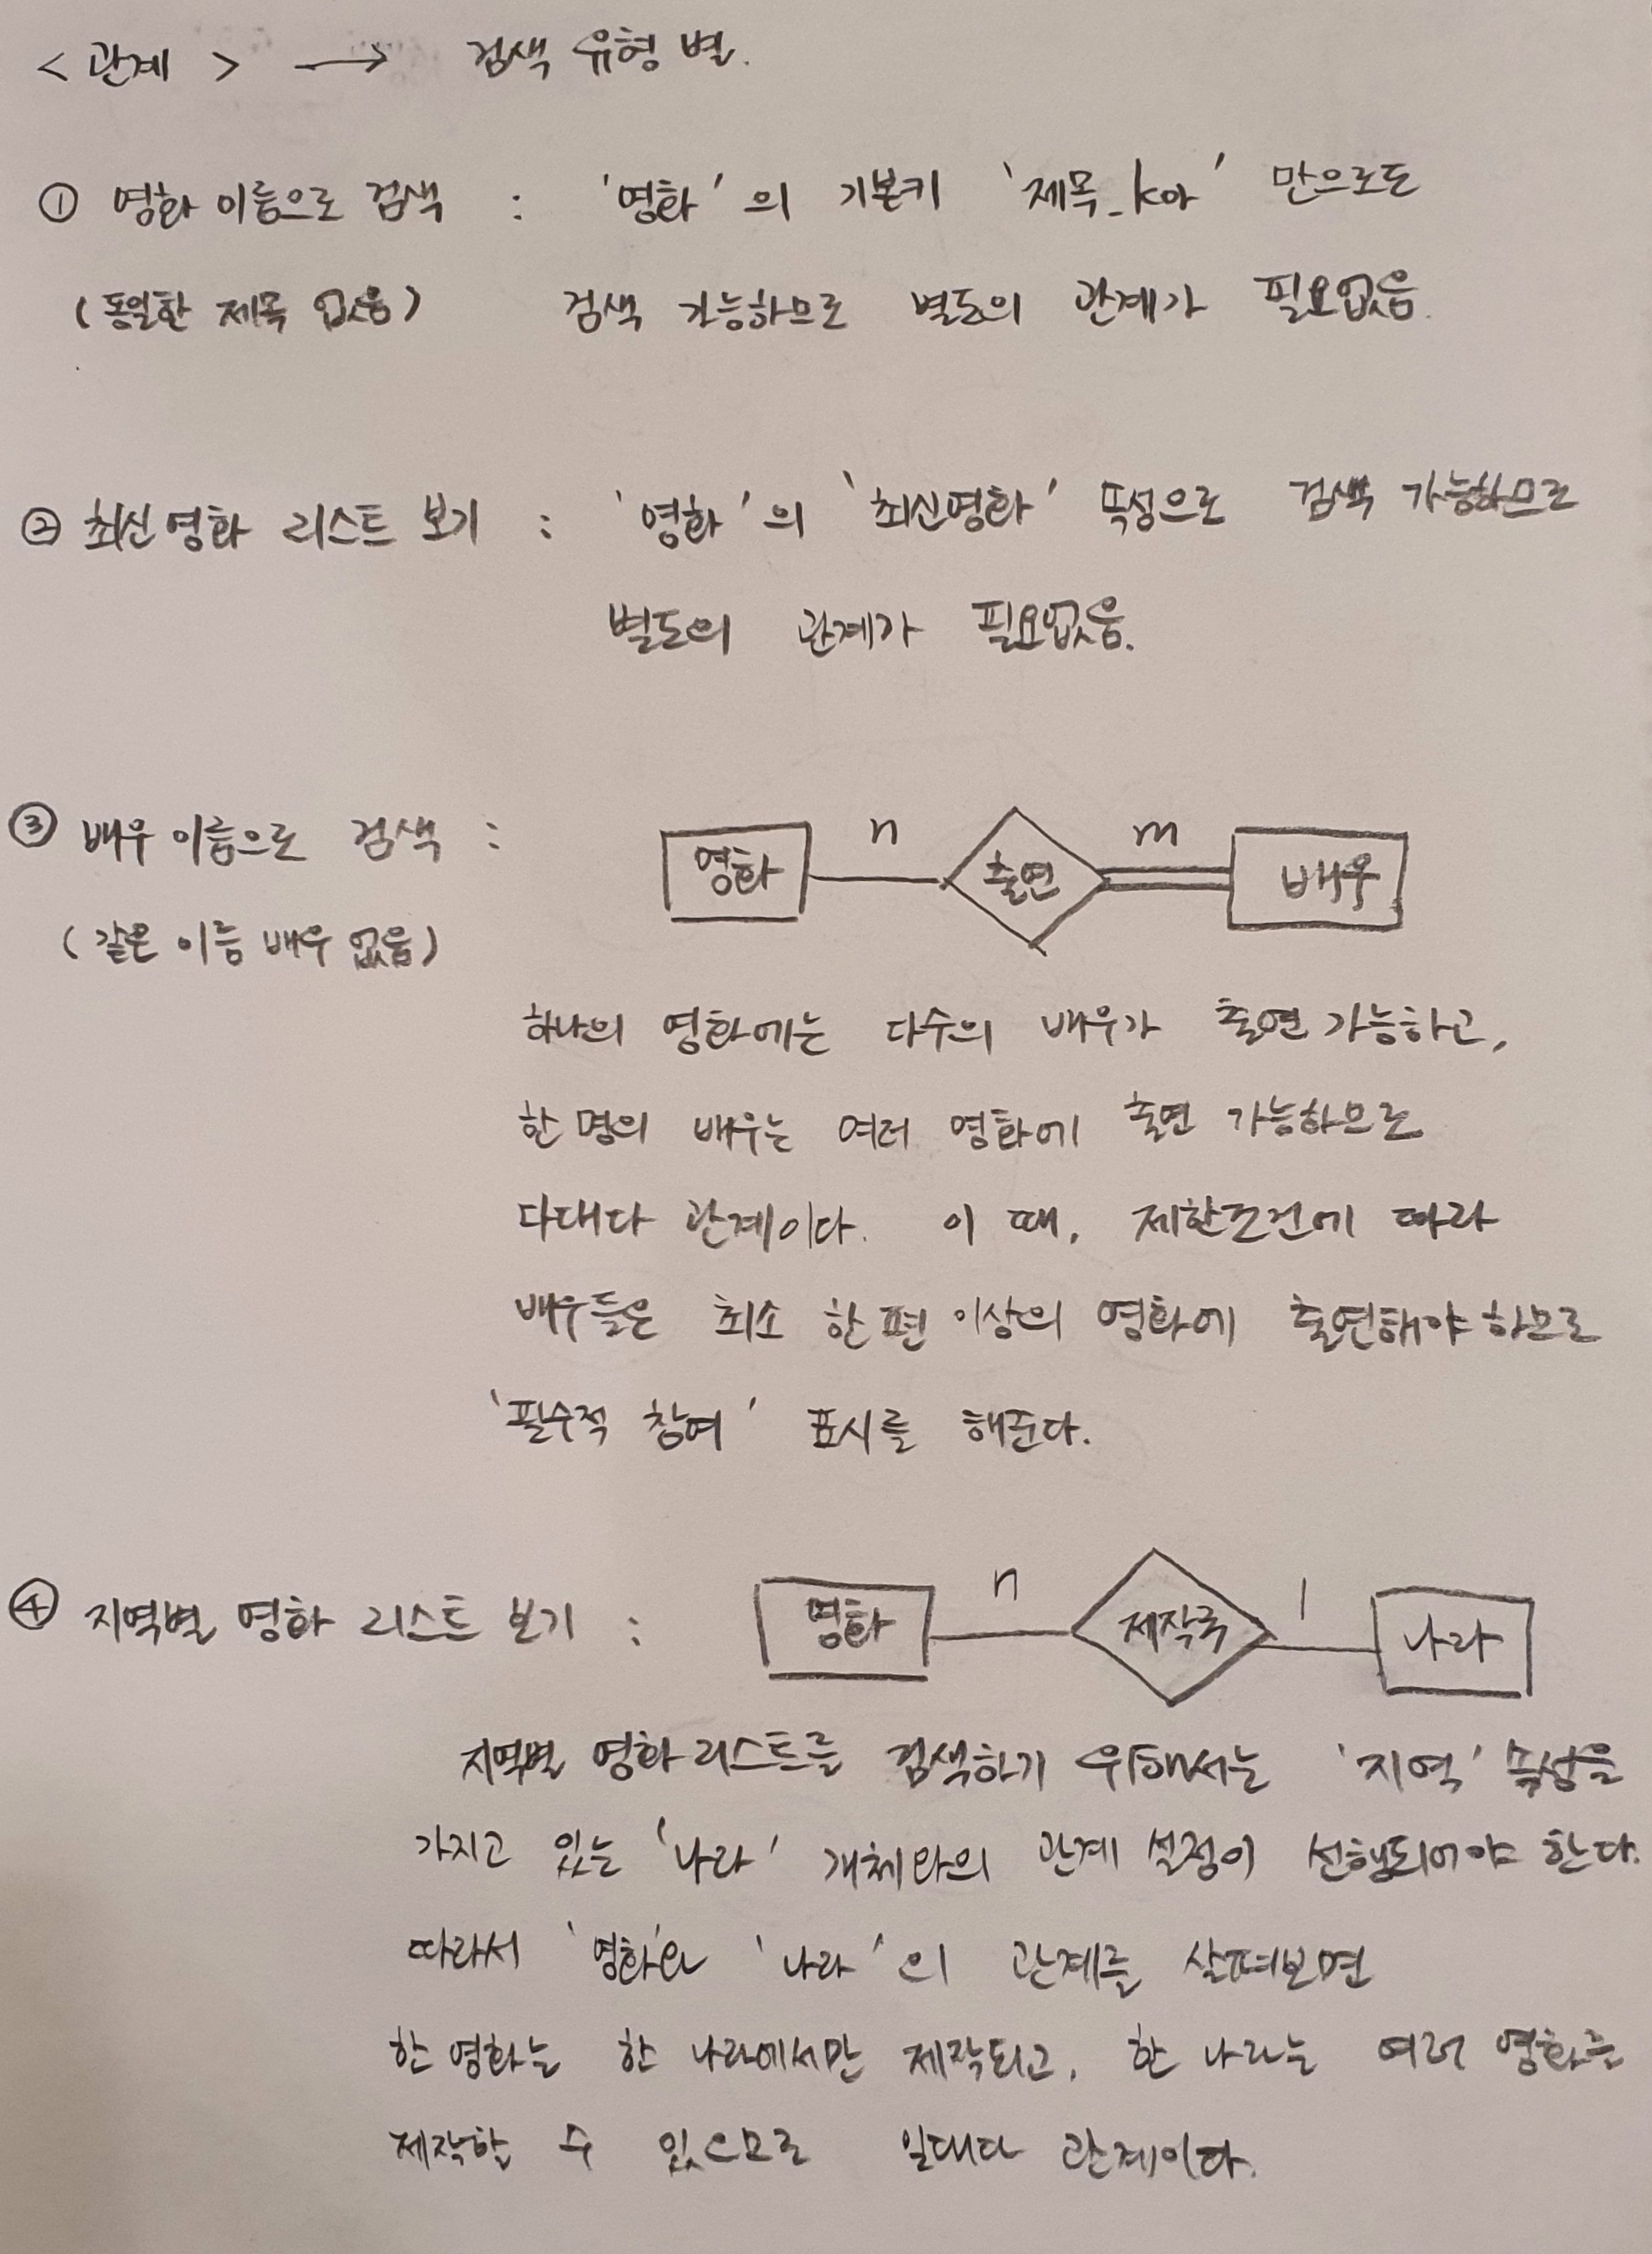 <관계> → 검색 유형 별.
① 영화 이름으로 검색 : '영화'의 기본키 '제목_kor' 만으로도
(동일한 제목 없음) 검색 가능하므로 별도의 관계가 필요없음.
② 최신영화 리스트 보기 : '영화'의 '최신영화' 속성으로 검색 가능하므로
별도의 관계가 필요없음.
③ 배우 이름으로 검색 : 영화 n 출연 m 배우
(같은 이름 배우 없음)
하나의 영화에는 다수의 배우가 출연 가능하고,
한 명의 배우는 여러 영화에 출연 가능하므로
다대다 관계이다. 이 때, 제한조건에 따라
배우들은 최소 한 편 이상의 영화에 출연해야 하므로
'필수적 참여' 표시를 해준다.
④ 지역별 영화 리스트 보기 : 영화 n 제작국 1 나라
지역별 영화 리스트를 검색하기 위해서는 '지역' 속성을
가지고 있는 '나라' 개체와의 관계 설정이 선행되어야 한다.
따라서 '영화'와 '나라'의 관계를 살펴보면
한 영화는 한 나라에서만 제작되고, 한 나라는 여러 영화를
제작할 수 있으므로 일대다 관계이다.